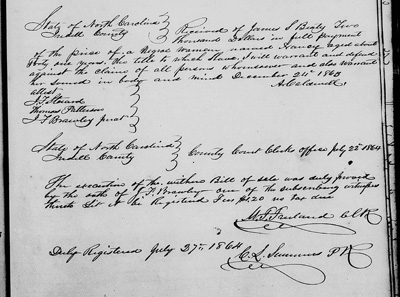 State of North Carolina } Received of James S Beaty Two
Iredell County } Thousand Dollars in full payment
of the price of a Negro woman named Nancy aged about
forty one years. the title to which slave I will warrant and defend
against the claims of all persons whomsoever and also warrant
her sound in body and mind December 24th 1863
attest A Caldwell
Thomas Patterson
J F Brawley jurat
State of North Carolina } County Court Clerks office July 25th 1864
Iredell County }
The execution of the within Bill of sale was duly proved
by the oath of J. F. Brawley one of the subscribing witness
thereto Let it be Registered Fees $1.20 no tax due
C L K
Duly Registered July 27th 1864 C. L. Summers P R